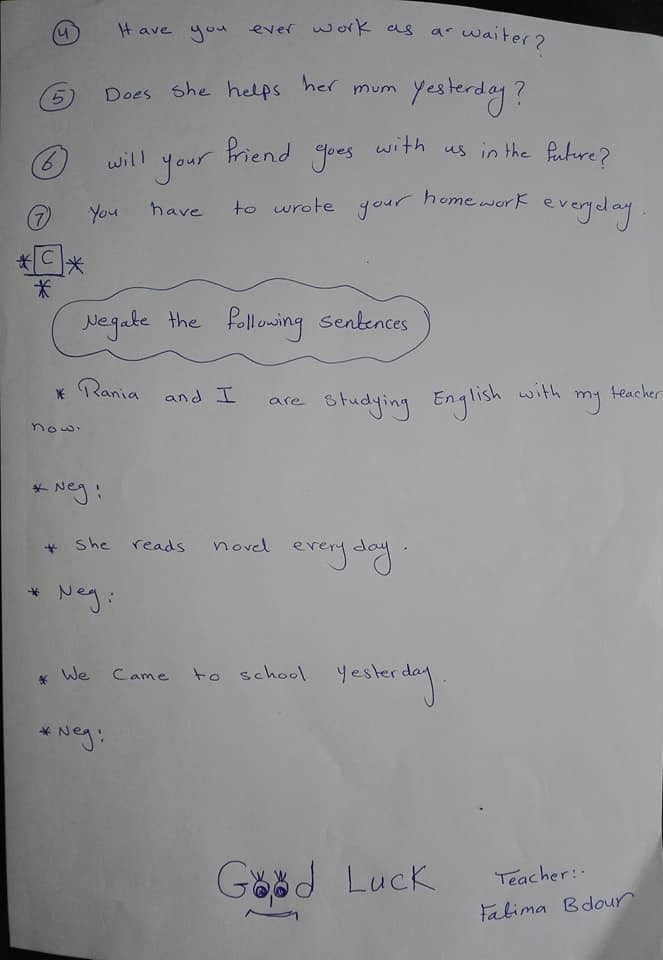 4 Have you ever work as a waiter?
5 Does she helps her mum yesterday?
6 will your friend goes with us in the future?
7 You have to wrote your homework everyday.
* C *
*
Negate the following sentences
* Rania and I are studying English with my teacher
now.
* Neg:
* She reads novel every day.
* Neg:
* We came to school yesterday.
* Neg:
Good Luck
Teacher:.
Fatima Bdour